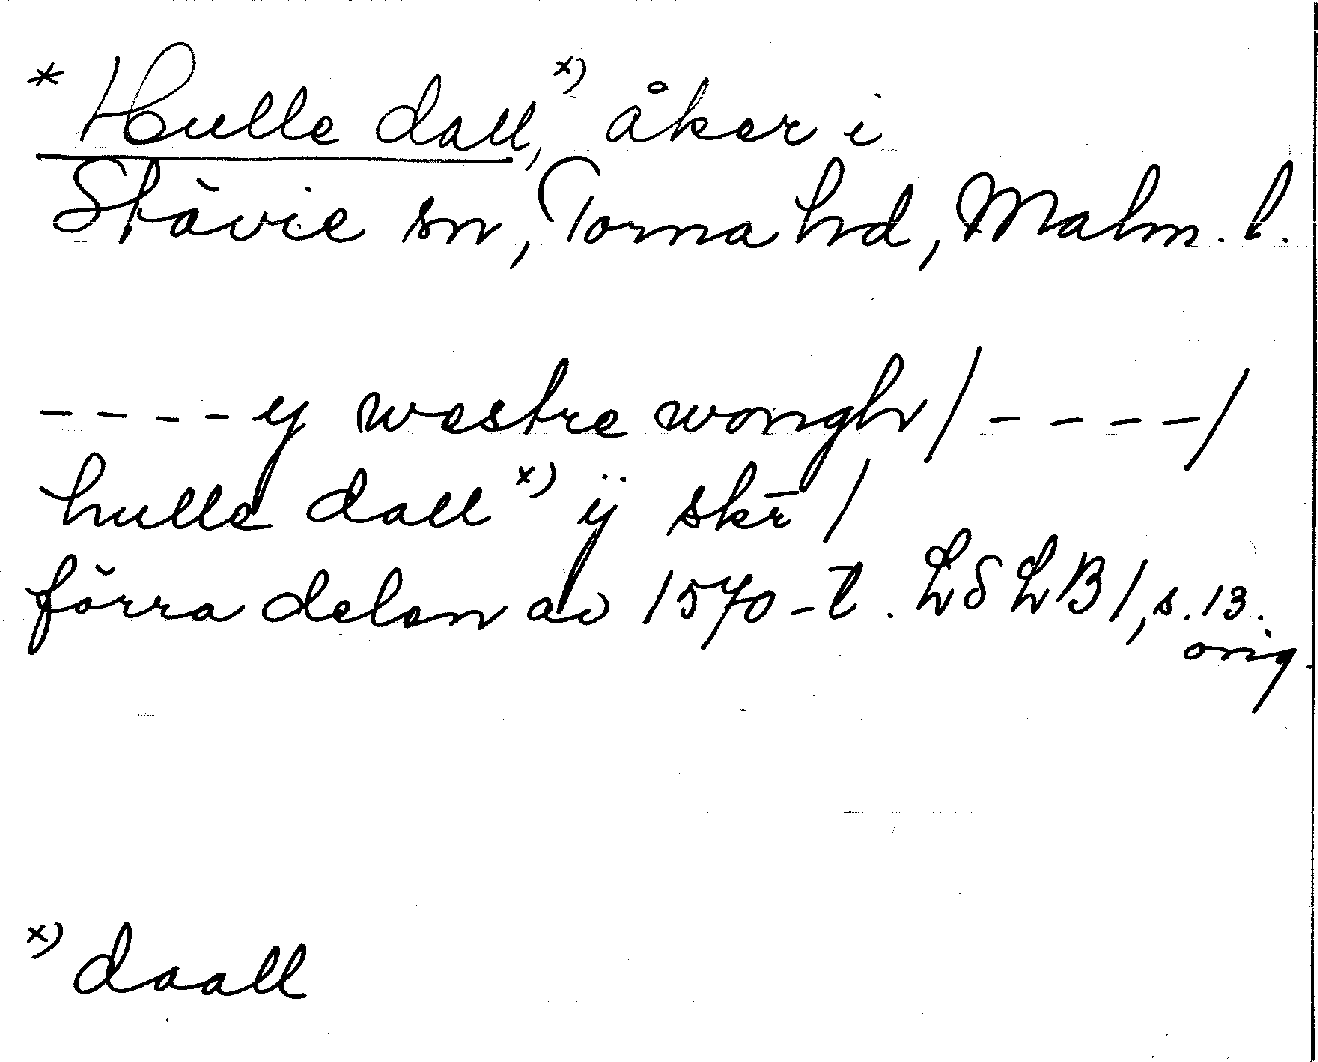 * Hulle dall, x) åker i
Stävie sn, Torna hd, Malm. l.
- - - - y westre wongh / - - - - /
hulle dall x) ÿ skr̄ /
förra delen av 1570-t. LSLB 1, s. 13.
orig.
x) daall